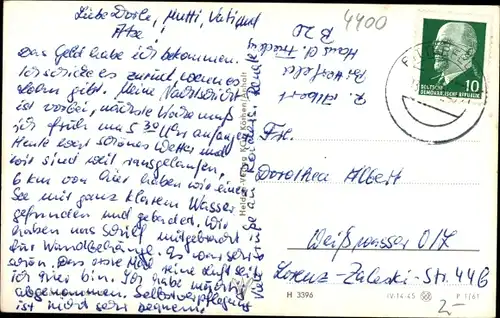 Liebe Dorle, Mutti, Vati und
Atze!
Das Geld habe ich bekommen.
Ich schicke es zurück, wenn es
Lohn gibt. Meine Nachtschicht
ist vorbei, nächste Woche muß
ich früh um 5 30 Uhr anfangen.
Heute war schönes Wetter und
wir sind weit rausgelaufen,
6 km von hier haben wir eine
See mit ganz klarem Wasser
gefunden und gebadet. Wir
haben uns Schilf mitgebracht
für Wandbehänge. Es war sehr
schön. Das erste Mal seine Luft seit
ich hier bin. Ich habe
abgenommen. Selbstverpflegung
ist nicht sehr bequem.
Viele
4400
Z. Albert
Haus d. Friedens
B 20
Frl.
Dorothea Albert
Weißwasser O/L
Lorenz-Zaleski-Str. 44b
2,-
DEUTSCHE
DEMOKRATISCHE REPUBLIK
10
Heldge-Verlag KG, Köthen/Anhalt
H 3396
IV-14-45
P 1/61